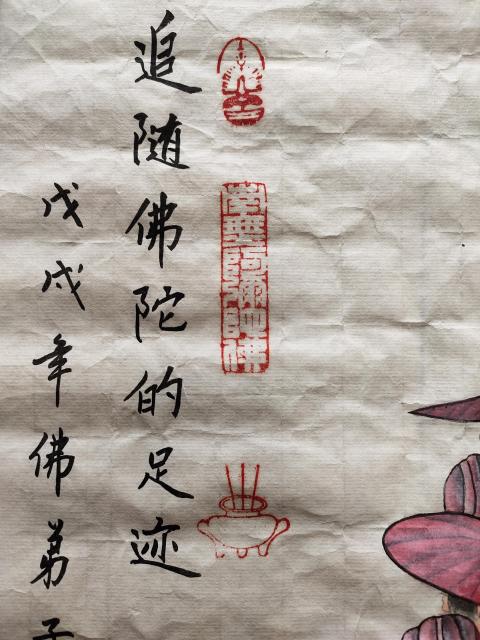 南無阿彌陀佛
追随佛陀的足迹
戊戌年佛弟子